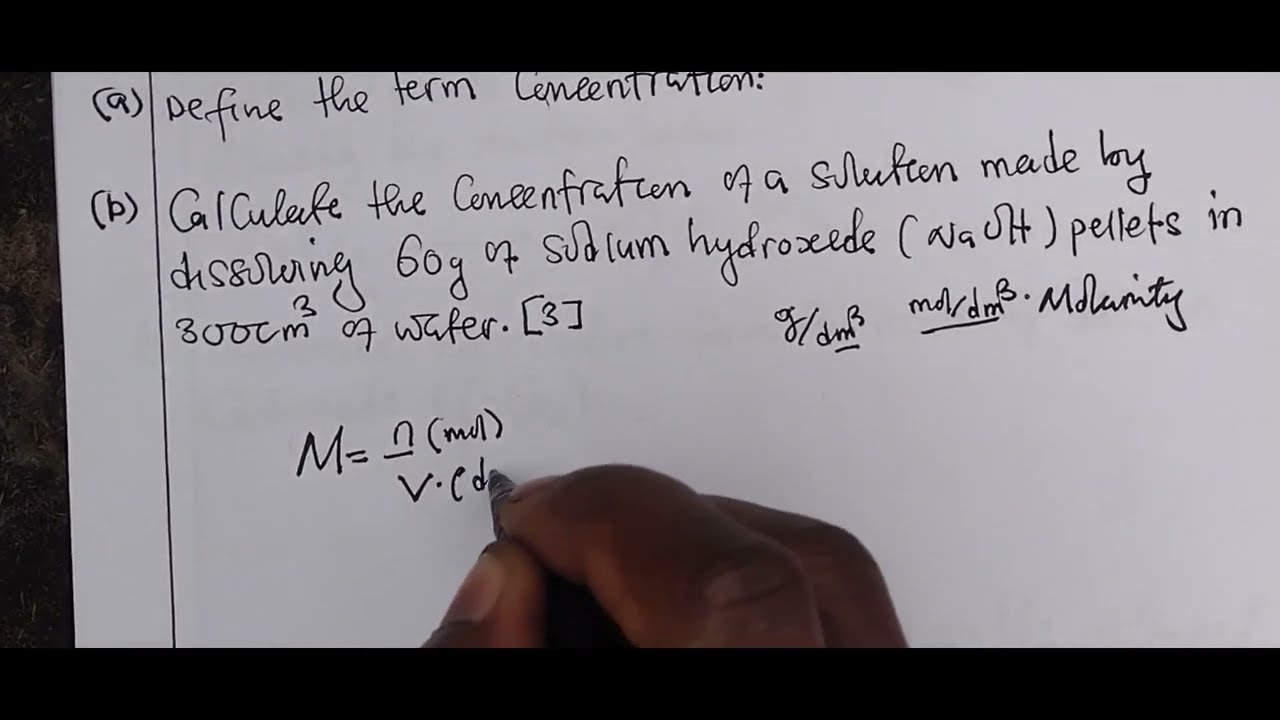 (a) Define the term Concentration:
(b) Calculate the Concentration of a solution made by
dissolving 60g of sodium hydroxide (NaOH) pellets in
300cm³ of water. [3]
g/dm³ mol/dm³. Molarity
M = n (mol)
V. (d